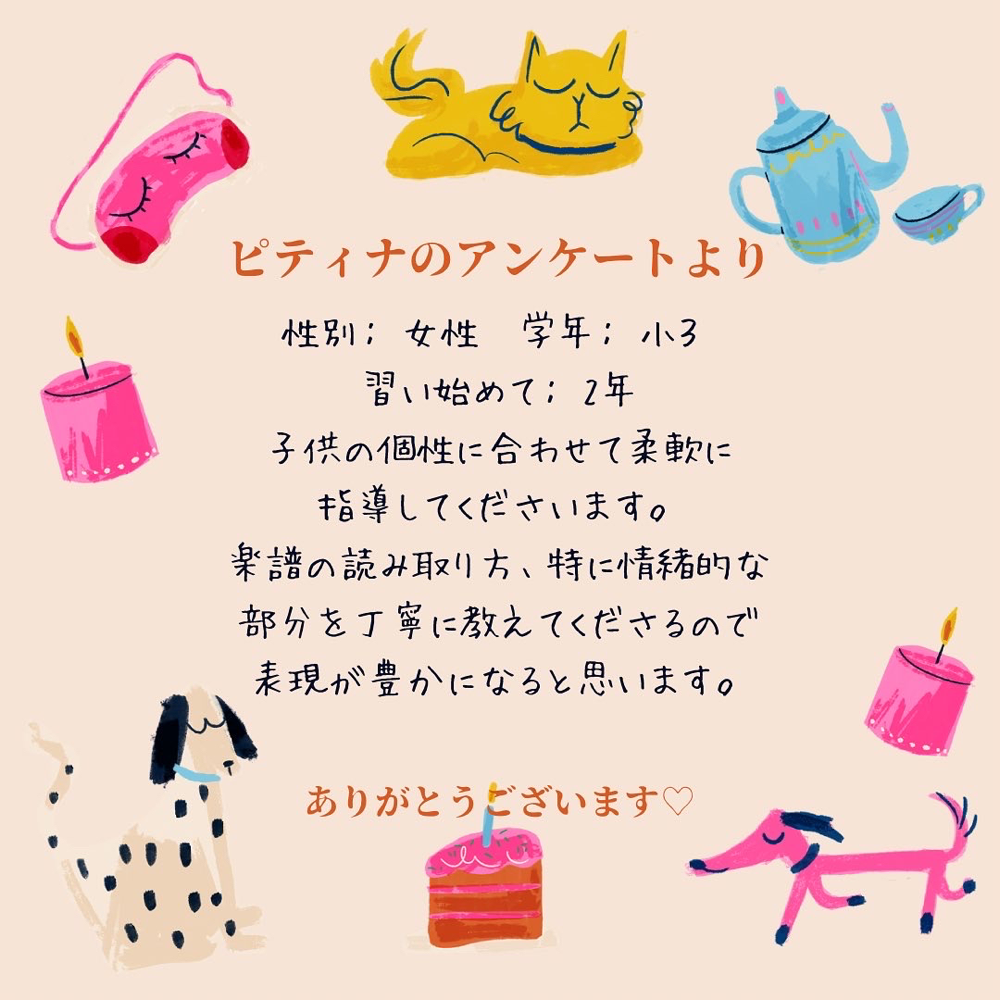 ピティナのアンケートより
性別； 女性　学年； 小3
習い始めて； 2年
子供の個性に合わせて柔軟に
指導してくださいます。
楽譜の読み取り方、特に情緒的な
部分を丁寧に教えてくださるので
表現が豊かになると思います。
ありがとうございます♡